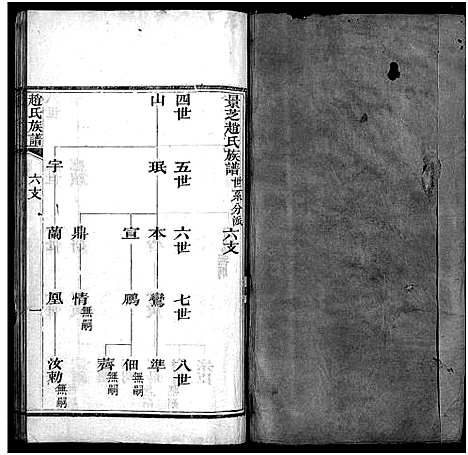 景芝趙氏族譜世系分派六支
四世 五世 六世 七世 八世
山 珉 本 鸞 準
宣 鵬 佃無嗣
齊無嗣
鼎 情無嗣
宇 蘭 凰 汝勅無嗣
趙氏族譜 六支 一